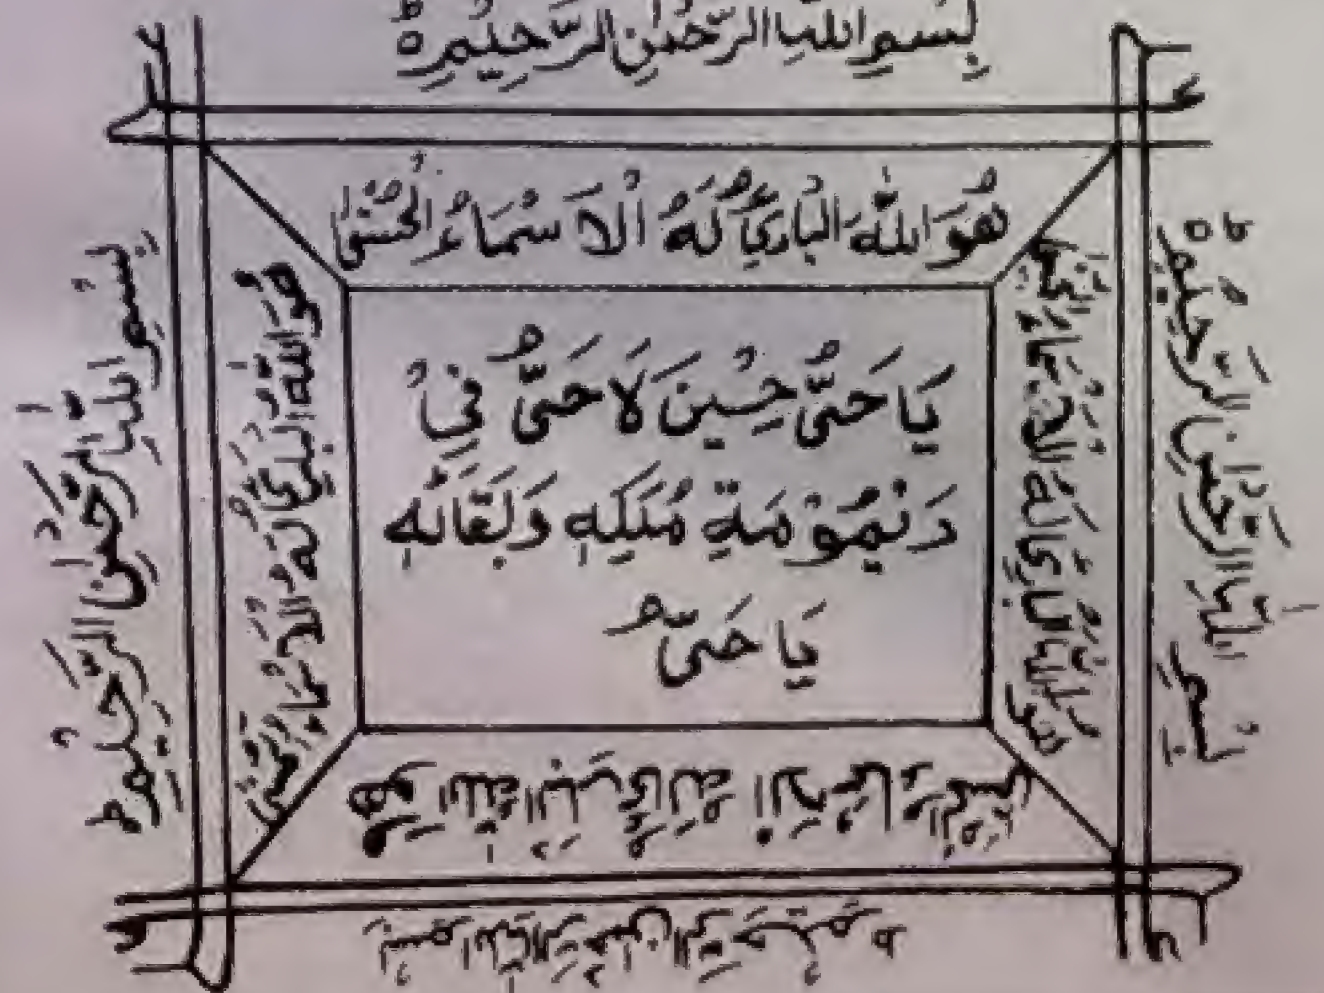 بِسْمِ اللّٰهِ الرَّحْمٰنِ الرَّحِيْمِ ۝ط
هُوَ اللّٰهُ الْبَارِئُ لَهُ الْاَسْمَاءُ الْحُسْنٰى
يَا حَىُّ حِيْنَ لَا حَىُّ فِىْ
دَيْمُوْمَةِ مُلْكِهٖ وَبَقَائِهٖ
يَا حَىُّ
هُوَ اللّٰهُ الْبَارِئُ لَهُ الْاَسْمَاءُ الْحُسْنٰى
هُوَ اللّٰهُ الْبَارِئُ لَهُ الْاَسْمَاءُ الْحُسْنٰى
هُوَ اللّٰهُ الْبَارِئُ لَهُ الْاَسْمَاءُ الْحُسْنٰى
بِسْمِ اللّٰهِ الرَّحْمٰنِ الرَّحِيْمِ ط
بِسْمِ اللّٰهِ الرَّحْمٰنِ الرَّحِيْمِ ۝ط
بِسْمِ اللّٰهِ الرَّحْمٰنِ الرَّحِيْمِ ط